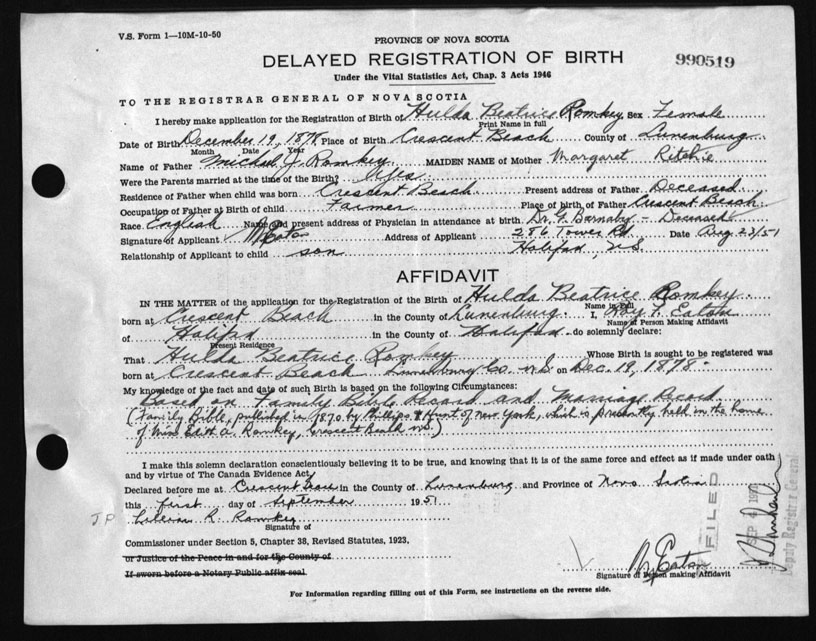 V.S. Form 1—10M-10-50
PROVINCE OF NOVA SCOTIA
DELAYED REGISTRATION OF BIRTH
990519
Under the Vital Statistics Act, Chap. 3 Acts 1946
TO THE REGISTRAR GENERAL OF NOVA SCOTIA
I hereby make application for the Registration of Birth of Hulda Beatrice Romkey Sex Female
Print Name in full
Date of Birth December 19, 1878 Place of Birth Crescent Beach County of Lunenburg
Month Date Year
Name of Father Michael J. Romkey MAIDEN NAME of Mother Margaret Ritchie
Were the Parents married at the time of Birth? Yes
Residence of Father when child was born Crescent Beach Present address of Father Deceased
Occupation of Father at Birth of child Farmer Place of birth of Father Crescent Beach
Race English Name and present address of Physician in attendance at birth Dr. G. Barnaby - Deceased
Signature of Applicant Eaton Address of Applicant 286 Tower Rd. Date Aug 23/51
Relationship of Applicant to child son Halifax, N.S.
AFFIDAVIT
IN THE MATTER of the application for the Registration of the Birth of Hulda Beatrice Romkey
Name in Full
born at Crescent Beach in the County of Lunenburg. I, Roy F. Eaton
Name of Person Making Affidavit
of Halifax in the County of Halifax do solemnly declare:
Present Residence
That Hulda Beatrice Romkey Whose Birth is sought to be registered was
born at Crescent Beach Lunenburg Co. N.S on Dec. 19, 1878.
My knowledge of the fact and date of such Birth is based on the following Circumstances:
Based on Family Bible Record and Marriage Record
(Family Bible, published in 1870 by Phillips & Hunt of New York, which is presently held in the home
of Miss A. Romkey, Crescent Beach N.S.)
I make this solemn declaration conscientiously believing it to be true, and knowing that it is of the same force and effect as if made under oath
and by virtue of The Canada Evidence Act.
Declared before me at Crescent Beach in the County of Lunenburg and Province of Nova Scotia
this first day of September 1951
J P R. Romkey
Signature of
Commissioner under Section 5, Chapter 38, Revised Statutes, 1923,
or Justice of the Peace in and for the County of
If sworn before a Notary Public affix seal
Eaton
Signature of Person making Affidavit
FILED
Deputy Registrar General
For Information regarding filling out of this Form, see instructions on the reverse side.